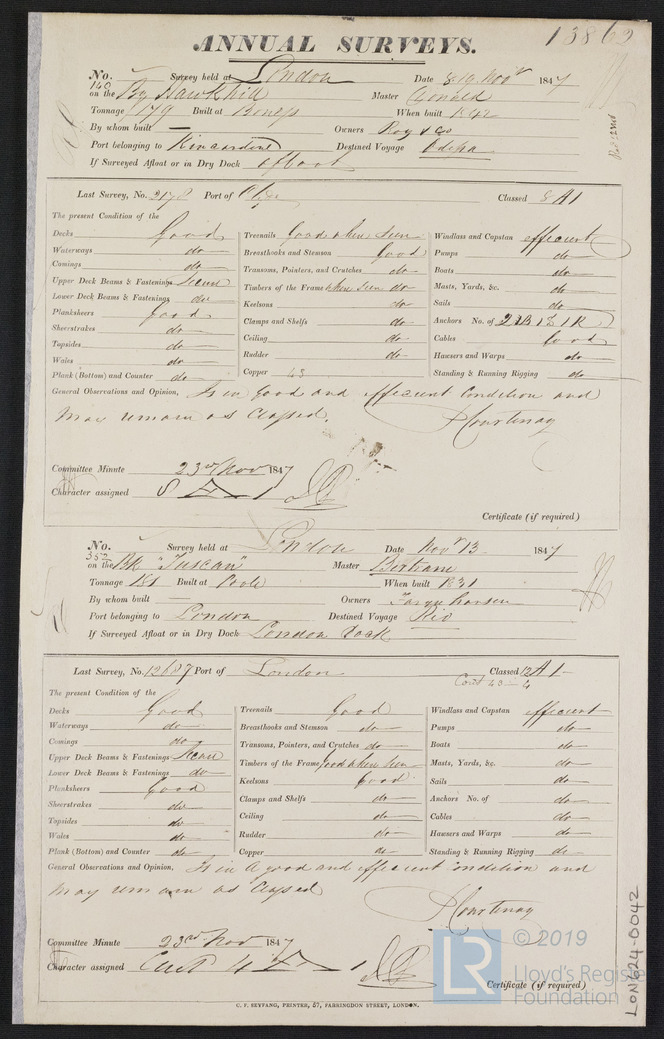 13862
ANNUAL SURVEYS.
No. 140 Survey held at London Date & 10 Novr 1847
on the Bg Hawkhill Master
Tonnage 179 Built at Built at When built 1842
By whom built — Owners Roy & Co
Port belonging to Kincardine Destined Voyage Odessa
If Surveyed Afloat or in Dry Dock afloat
Last Survey, No. 3178 Port of Clyde Classed 8 A1
The present Condition of the
Decks Good Treenails Good when seen Windlass and Capstan efficient
Waterways do Breasthooks and Stemson Good Pumps do
Comings do Transoms, Pointers, and Crutches do Boats do
Upper Deck Beams & Fastenings Secure Timbers of the Frame when seen do Masts, Yards, &c. do
Lower Deck Beams & Fastenings do Keelsons do Sails do
Planksheers Good Clamps and Shelfs do Anchors No. of 2 B 1 S 1 K
Sheerstrakes do Ceiling do Cables Good
Topsides do Rudder do Hawsers and Warps do
Wales do Copper 43 Standing & Running Rigging do
Plank (Bottom) and Counter do
General Observations and Opinion, Is in Good and efficient Condition and
May remain as Classed. Courtenay
Committee Minute 23rd Nov 1847
Character assigned 8 A 1
Certificate (if required)
No. 352 Survey held at London Date Novr 13 1847
on the Bk "Tuscan" Master Bertram
Tonnage 181 Built at Poole When built 1831
By whom built — Owners Farquharson
Port belonging to London Destined Voyage Rio
If Surveyed Afloat or in Dry Dock London Dock
Last Survey, No. 12687 Port of London Classed 12 A1
Cont 43 - 4
The present Condition of the
Decks Good Treenails Good Windlass and Capstan efficient
Waterways do Breasthooks and Stemson do Pumps do
Comings do Transoms, Pointers, and Crutches do Boats do
Upper Deck Beams & Fastenings Secure Timbers of the Frame Good when seen Masts, Yards, &c. do
Lower Deck Beams & Fastenings do Keelsons Good Sails do
Planksheers Good Clamps and Shelfs do Anchors No. of do
Sheerstrakes do Ceiling do Cables do
Topsides do Rudder do Hawsers and Warps do
Wales do Copper do Standing & Running Rigging do
Plank (Bottom) and Counter do
General Observations and Opinion, Is in A good and efficient condition and
May remain as Classed
Courtenay
Committee Minute 23rd Nov 1847
Character assigned Cont 4 A 1
Certificate (if required)
C. F. SEYFANG, PRINTER, 57, FARRINGDON STREET, LONDON.
LON624-0042
LR © 2019
Lloyd's Register
Foundation